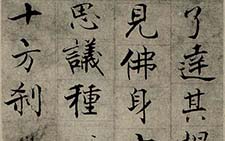 了達其
見佛身
思議種
十方剎